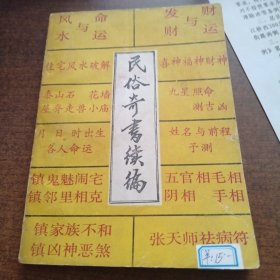 风水与命运
发财与财运
民俗奇书续编
住宅风水破解
喜神福神财神
泰山石 花墙
屋脊走兽小庙
九星照命
测吉凶
月日时出生
各人命运
姓名与前程
予测
镇鬼魅闹宅
镇邻里相克
五官相毛相
阴相 手相
镇家族不和
镇凶神恶煞
张天师祛病符